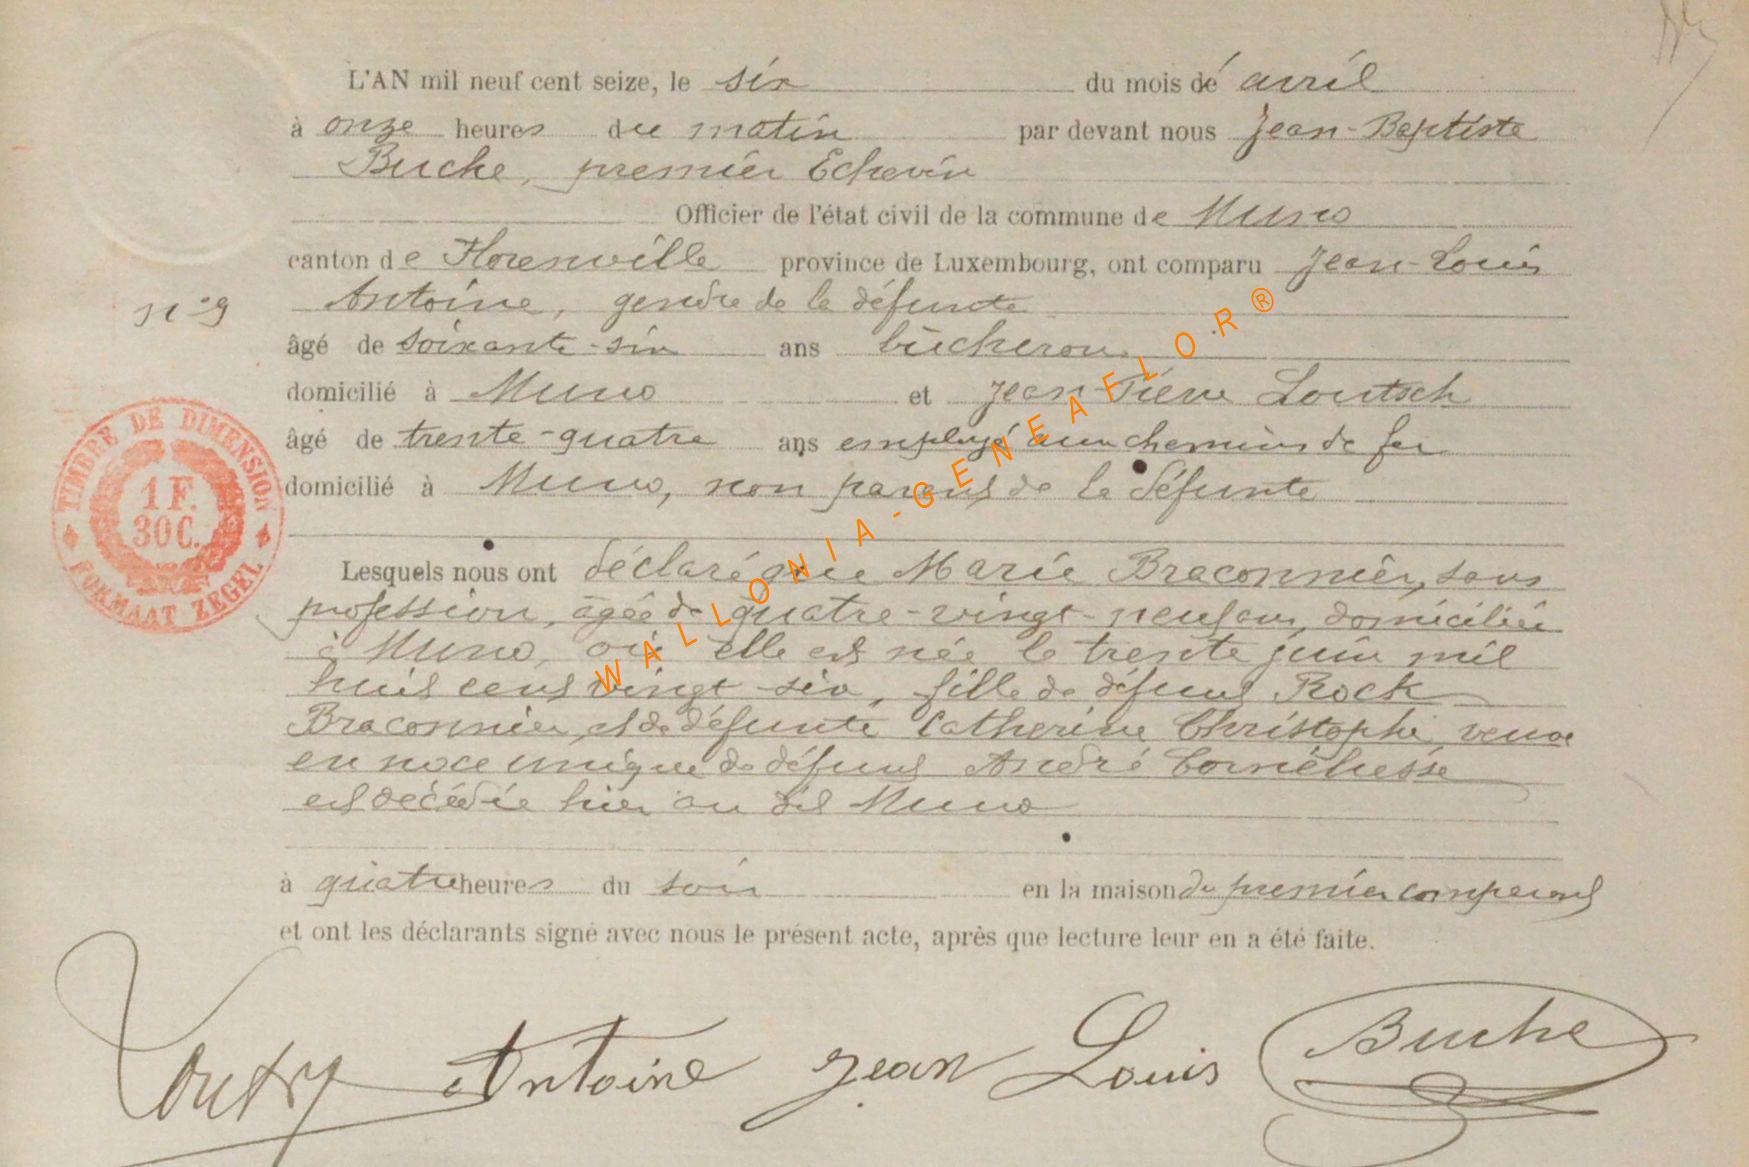 L'AN mil neuf cent seize, le six du mois de avril
à onze heures du matin par devant nous Jean-Baptiste
Buche, premier Echevin
Officier de l'état civil de la commune de Muno
canton de Florenville province de Luxembourg, ont comparu Jean-Louis
Antoine, gendre de la défunte
n° 9
âgé de soixante-six ans bûcheron
domicilié à Muno et Jean-Pierre Loutsch
âgé de trente-quatre ans employé aux chemins de fer
domicilié à Muno, non parent de la défunte
TIMBRE DE DIMENSION
1 F.
30 C.
FORMAAT ZEGEL
Lesquels nous ont déclaré que Marie Braconnier, sans
profession, âgée de quatre-vingt-neuf ans, domiciliée
à Muno, où elle est née le trente juin mil
huit cent vingt-six, fille de défunt Rock
Braconnier, et de défunte Catherine Christophe, veuve
en noce unique de défunt André Cornélusse
est décédée hier au dit Muno
à quatre heures du soir en la maison du premier comparant
et ont les déclarants signé avec nous le présent acte, après que lecture leur en a été faite.
Antoine Jean Louis Buche
WALLONIA-GENEAFLOR®